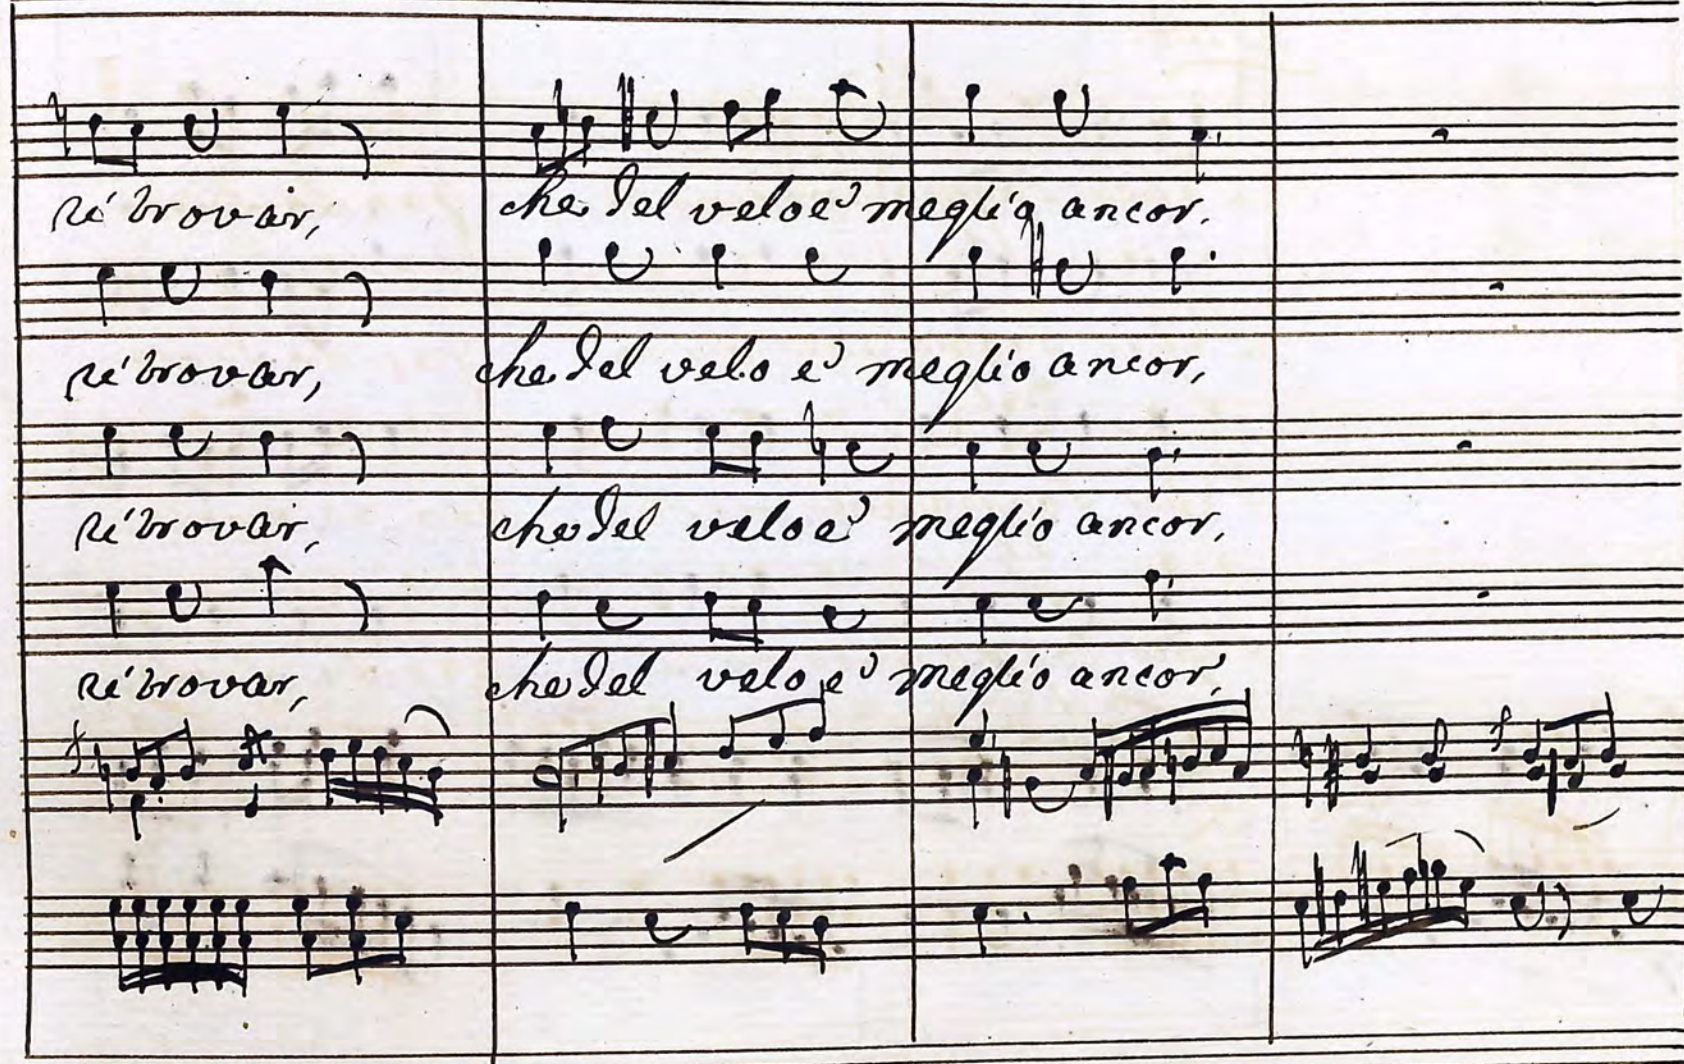 ri trovar, che del velo e' meglio ancor.
ri trovar, che del velo e' meglio ancor,
ri trovar, che del velo e' meglio ancor,
ri trovar, che del velo e' meglio ancor,